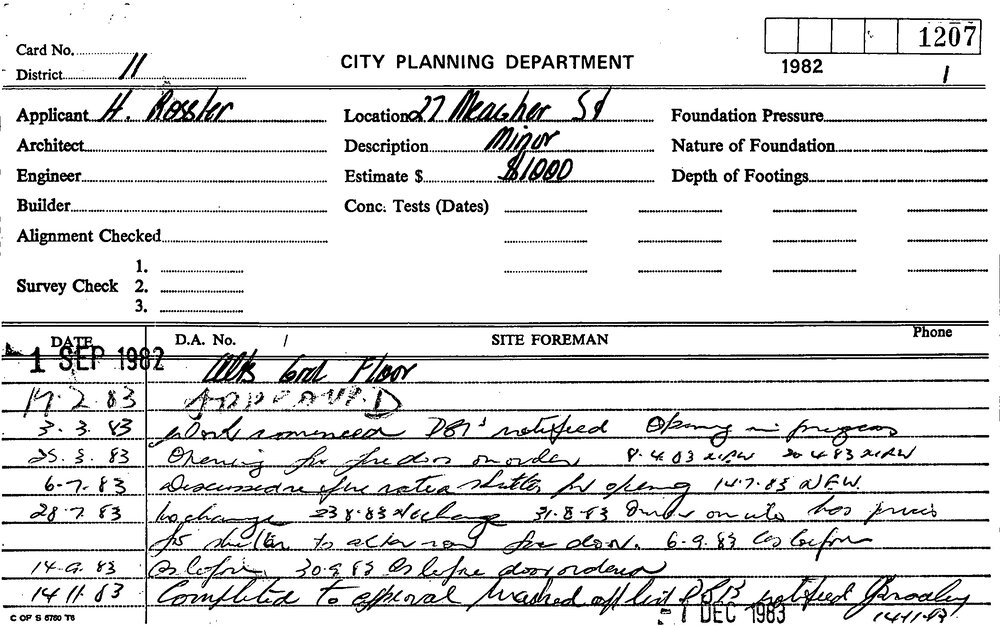 1207
Card No.
1982
District 11
CITY PLANNING DEPARTMENT
1
Applicant H. Rossler
Location 27 Meagher St
Foundation Pressure
Architect
Description Minor
Nature of Foundation
Engineer
Estimate $ $1000
Depth of Footings
Builder
Conc. Tests (Dates)
Alignment Checked
Survey Check 1.
2.
3.
DATE D.A. No. / SITE FOREMAN Phone
1 SEP 1982 Alts Grd Floor
17.2.83 APPROVED
3.3.83 Work commenced notified Opening in progress
25.3.83 Opening for fire door on order 8.4.83 20.4.83
6.7.83 Discussed fire rated shutter for opening 14.7.83 N.F.W.
28.7.83 No change 23.8.83 No change 31.8.83 on site has prices
for shutter to alter fire door. 6.9.83 As before
14.9.83 As before 30.9.83 As before door ordered
14.11.83 Completed to approval Marked off list notified
1 DEC 1983 14.11.83
C OF S 6760 T6